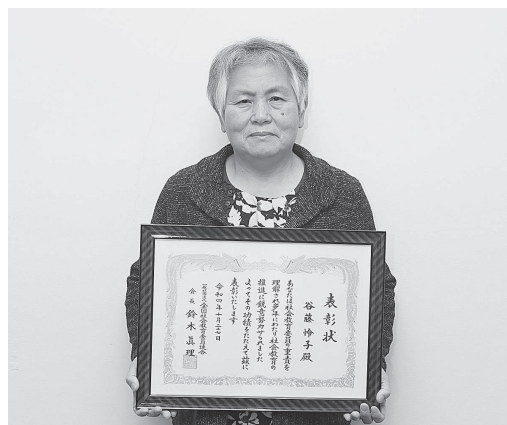 表彰状
谷藤怜子殿
あなたは社会教育委員の重責を
理解され多年にわたり社会教育の
推進に鋭意努力されました
よってその功績をたたえて茲に
表彰いたします
令和四年十月二十七日
一般社団法人全国社会教育委員連合
会長 鈴木眞理